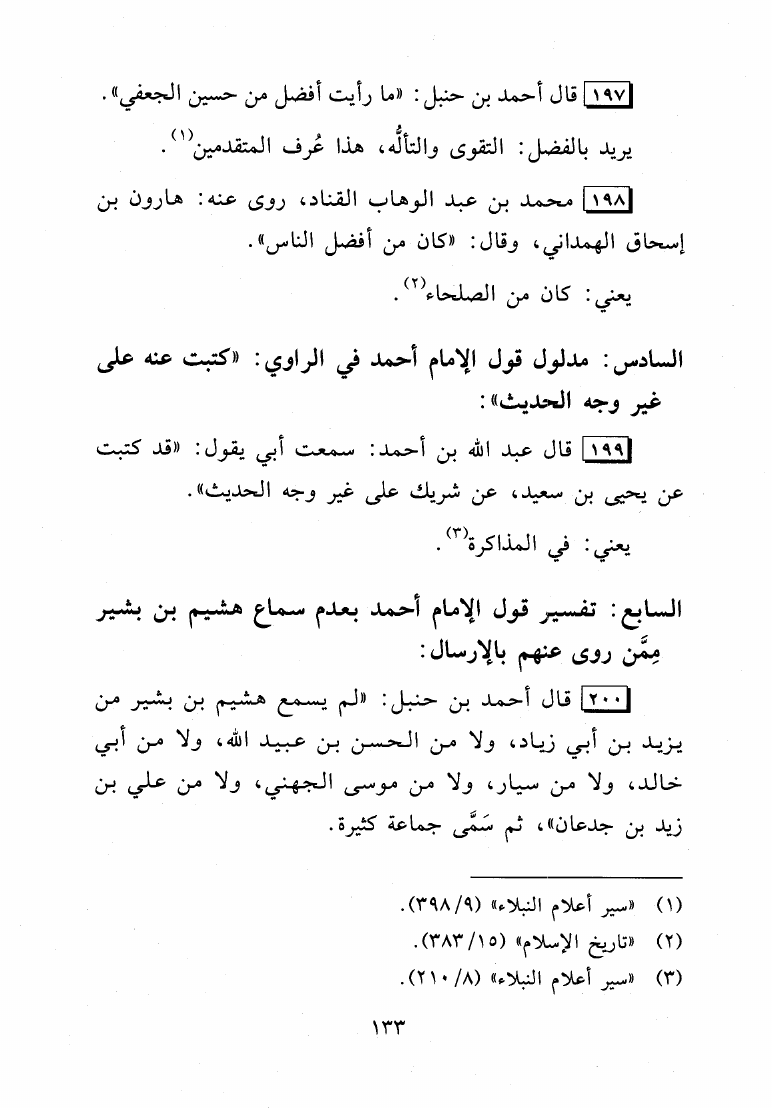 ١٩٧ قال أحمد بن حنبل: «ما رأيت أفضل من حسين الجعفي».
يريد بالفضل: التقوى والتألُّه، هذا عُرف المتقدمين(١).
١٩٨ محمد بن عبد الوهاب القناد، روى عنه: هارون بن
إسحاق الهمداني، وقال: «كان من أفضل الناس».
يعني: كان من الصلحاء(٢).
السادس: مدلول قول الإمام أحمد في الراوي: «كتبت عنه على
غير وجه الحديث»:
١٩٩ قال عبد الله بن أحمد: سمعت أبي يقول: «قد كتبت
عن يحيى بن سعيد، عن شريك على غير وجه الحديث».
يعني: في المذاكرة(٣).
السابع: تفسير قول الإمام أحمد بعدم سماع هشيم بن بشير
مِمَّن روى عنهم بالإرسال:
٢٠٠ قال أحمد بن حنبل: «لم يسمع هشيم بن بشير من
يزيد بن أبي زياد، ولا من الحسن بن عبيد الله، ولا من أبي
خالد، ولا من سيار، ولا من موسى الجهني، ولا من علي بن
زيد بن جدعان»، ثم سَمَّى جماعة كثيرة.
(١) «سير أعلام النبلاء» (٣٩٨/٩).
(٢) «تاريخ الإسلام» (٣٨٣/١٥).
(٣) «سير أعلام النبلاء» (٢١٠/٨).
١٣٣